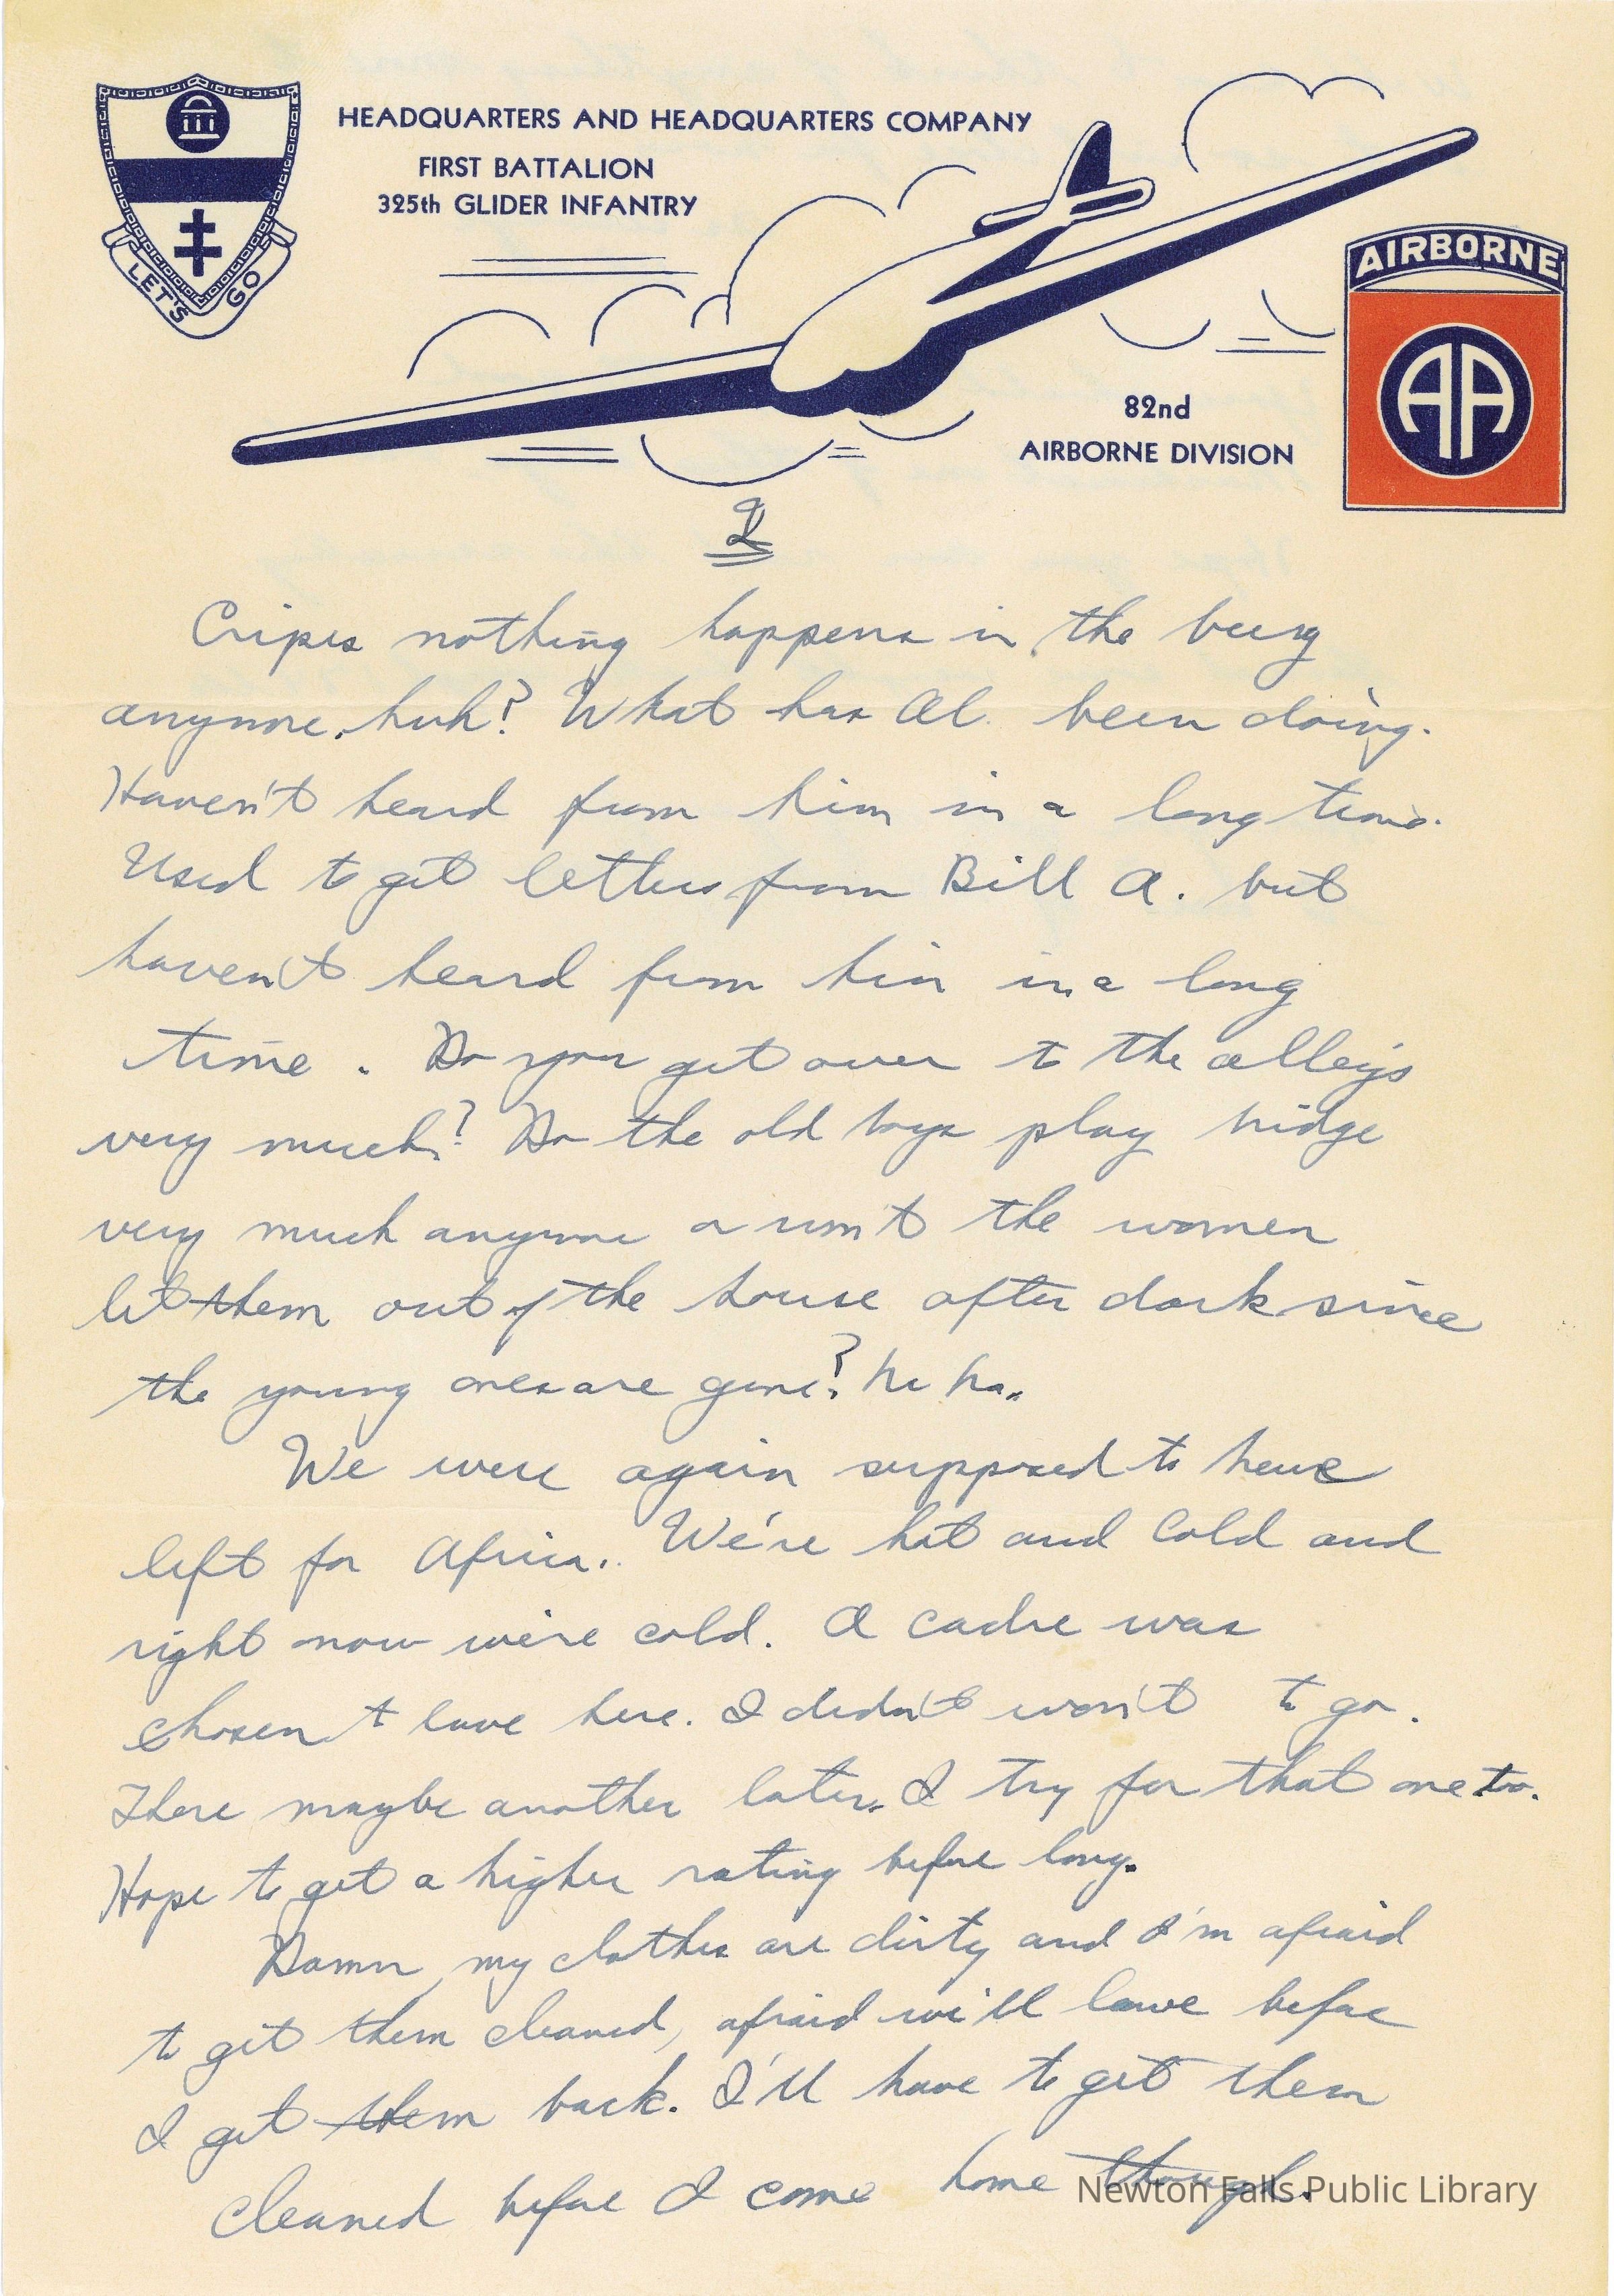 HEADQUARTERS AND HEADQUARTERS COMPANY
FIRST BATTALION
325th GLIDER INFANTRY
LET'S GO
AIRBORNE
AA
82nd
AIRBORNE DIVISION
2
Cripes nothing happens in the burg
anymore, huh? What has Al. been doing.
Haven't heard from him in a long time.
Used to get letters from Bill A. but
haven't heard from him in a long
time. Do you get over to the alleys
very much? Do the old boys play bridge
very much anymore or won't the women
let them out of the house after dark since
the young ones are gone? ha ha..
We were again supposed to have
left for Africa.. We're hot and cold and
right now we're cold. A cadre was
chosen t leave here. I didn't won't to go.
There maybe another later. I try for that one too.
Hope to get a higher rating before long.
Damn my clothes are dirty and I'm afraid
to get them cleaned, afraid we'll leave before
I get them back. I'll have to get them
cleaned before I come home though.
Newton Falls Public Library